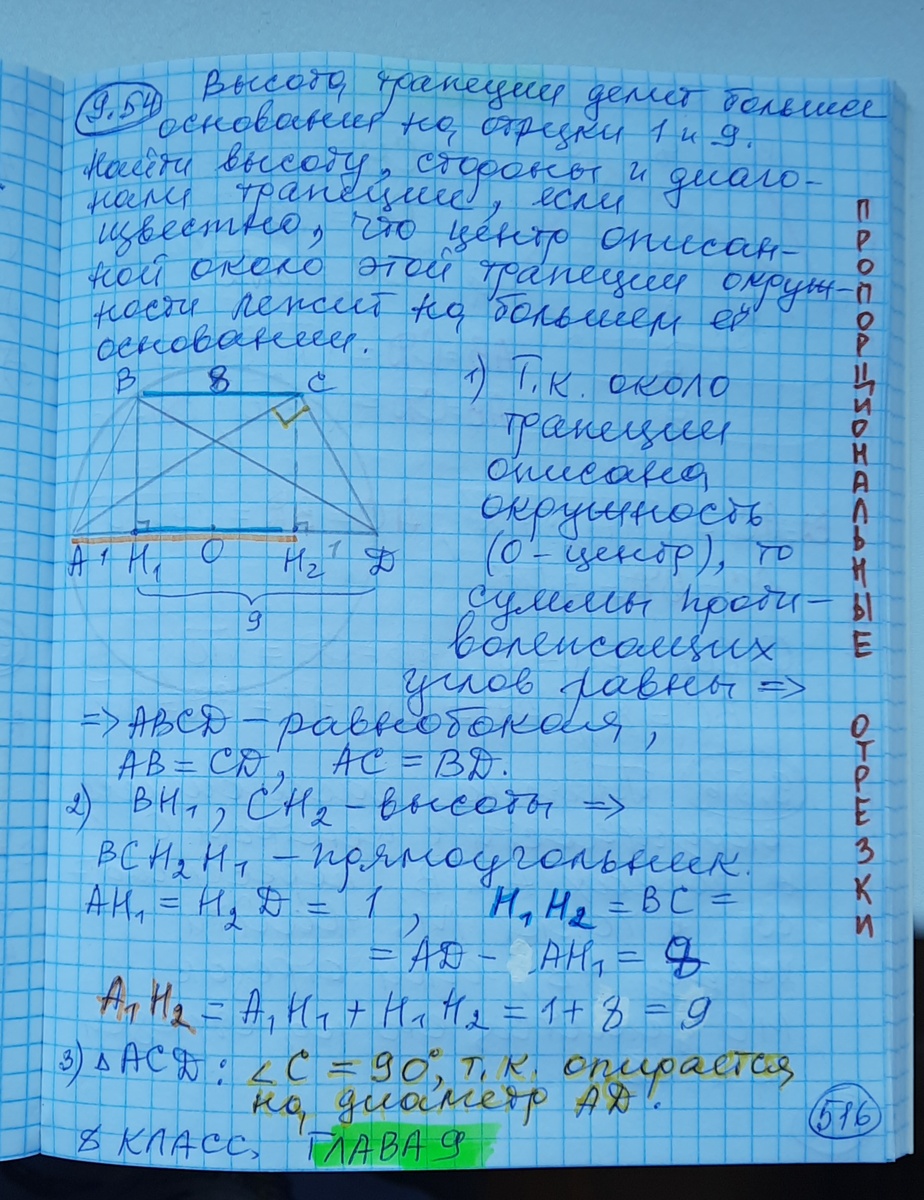 9.54 Высота трапеции делит большее
основание на отрезки 1 и 9.
Найти высоту, стороны и диаго-
нали трапеции, если
известно, что центр описан-
ной около этой трапеции окруж-
ности лежит на большем её
основании.
B 8 C
A 1 H₁ O H₂ 1 D
9
1) Т.к. около
трапеции
описана
окружность
(O – центр), то
суммы проти-
волежащих
углов равны =>
=> ABCD – равнобокая,
AB = CD, AC = BD.
2) BH₁, CH₂ – высоты =>
BCH₂H₁ – прямоугольник.
AH₁ = H₂D = 1, H₁H₂ = BC =
= AD - AH₁ = 8
A₁H₂ = A₁H₁ + H₁H₂ = 1 + 8 = 9
3) △ACD: ∠C = 90°, т.к. опирается
на диаметр AD.
8 КЛАСС, ГЛАВА 9
516
ПРОПОРЦИОНАЛЬНЫЕ ОТРЕЗКИ